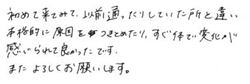 初めて来てみて、以前通ったりしていた所と違い
本格的に原因をつきとめたり、すぐ体で変化が
感じられて良かったです。
またよろしくお願いします。